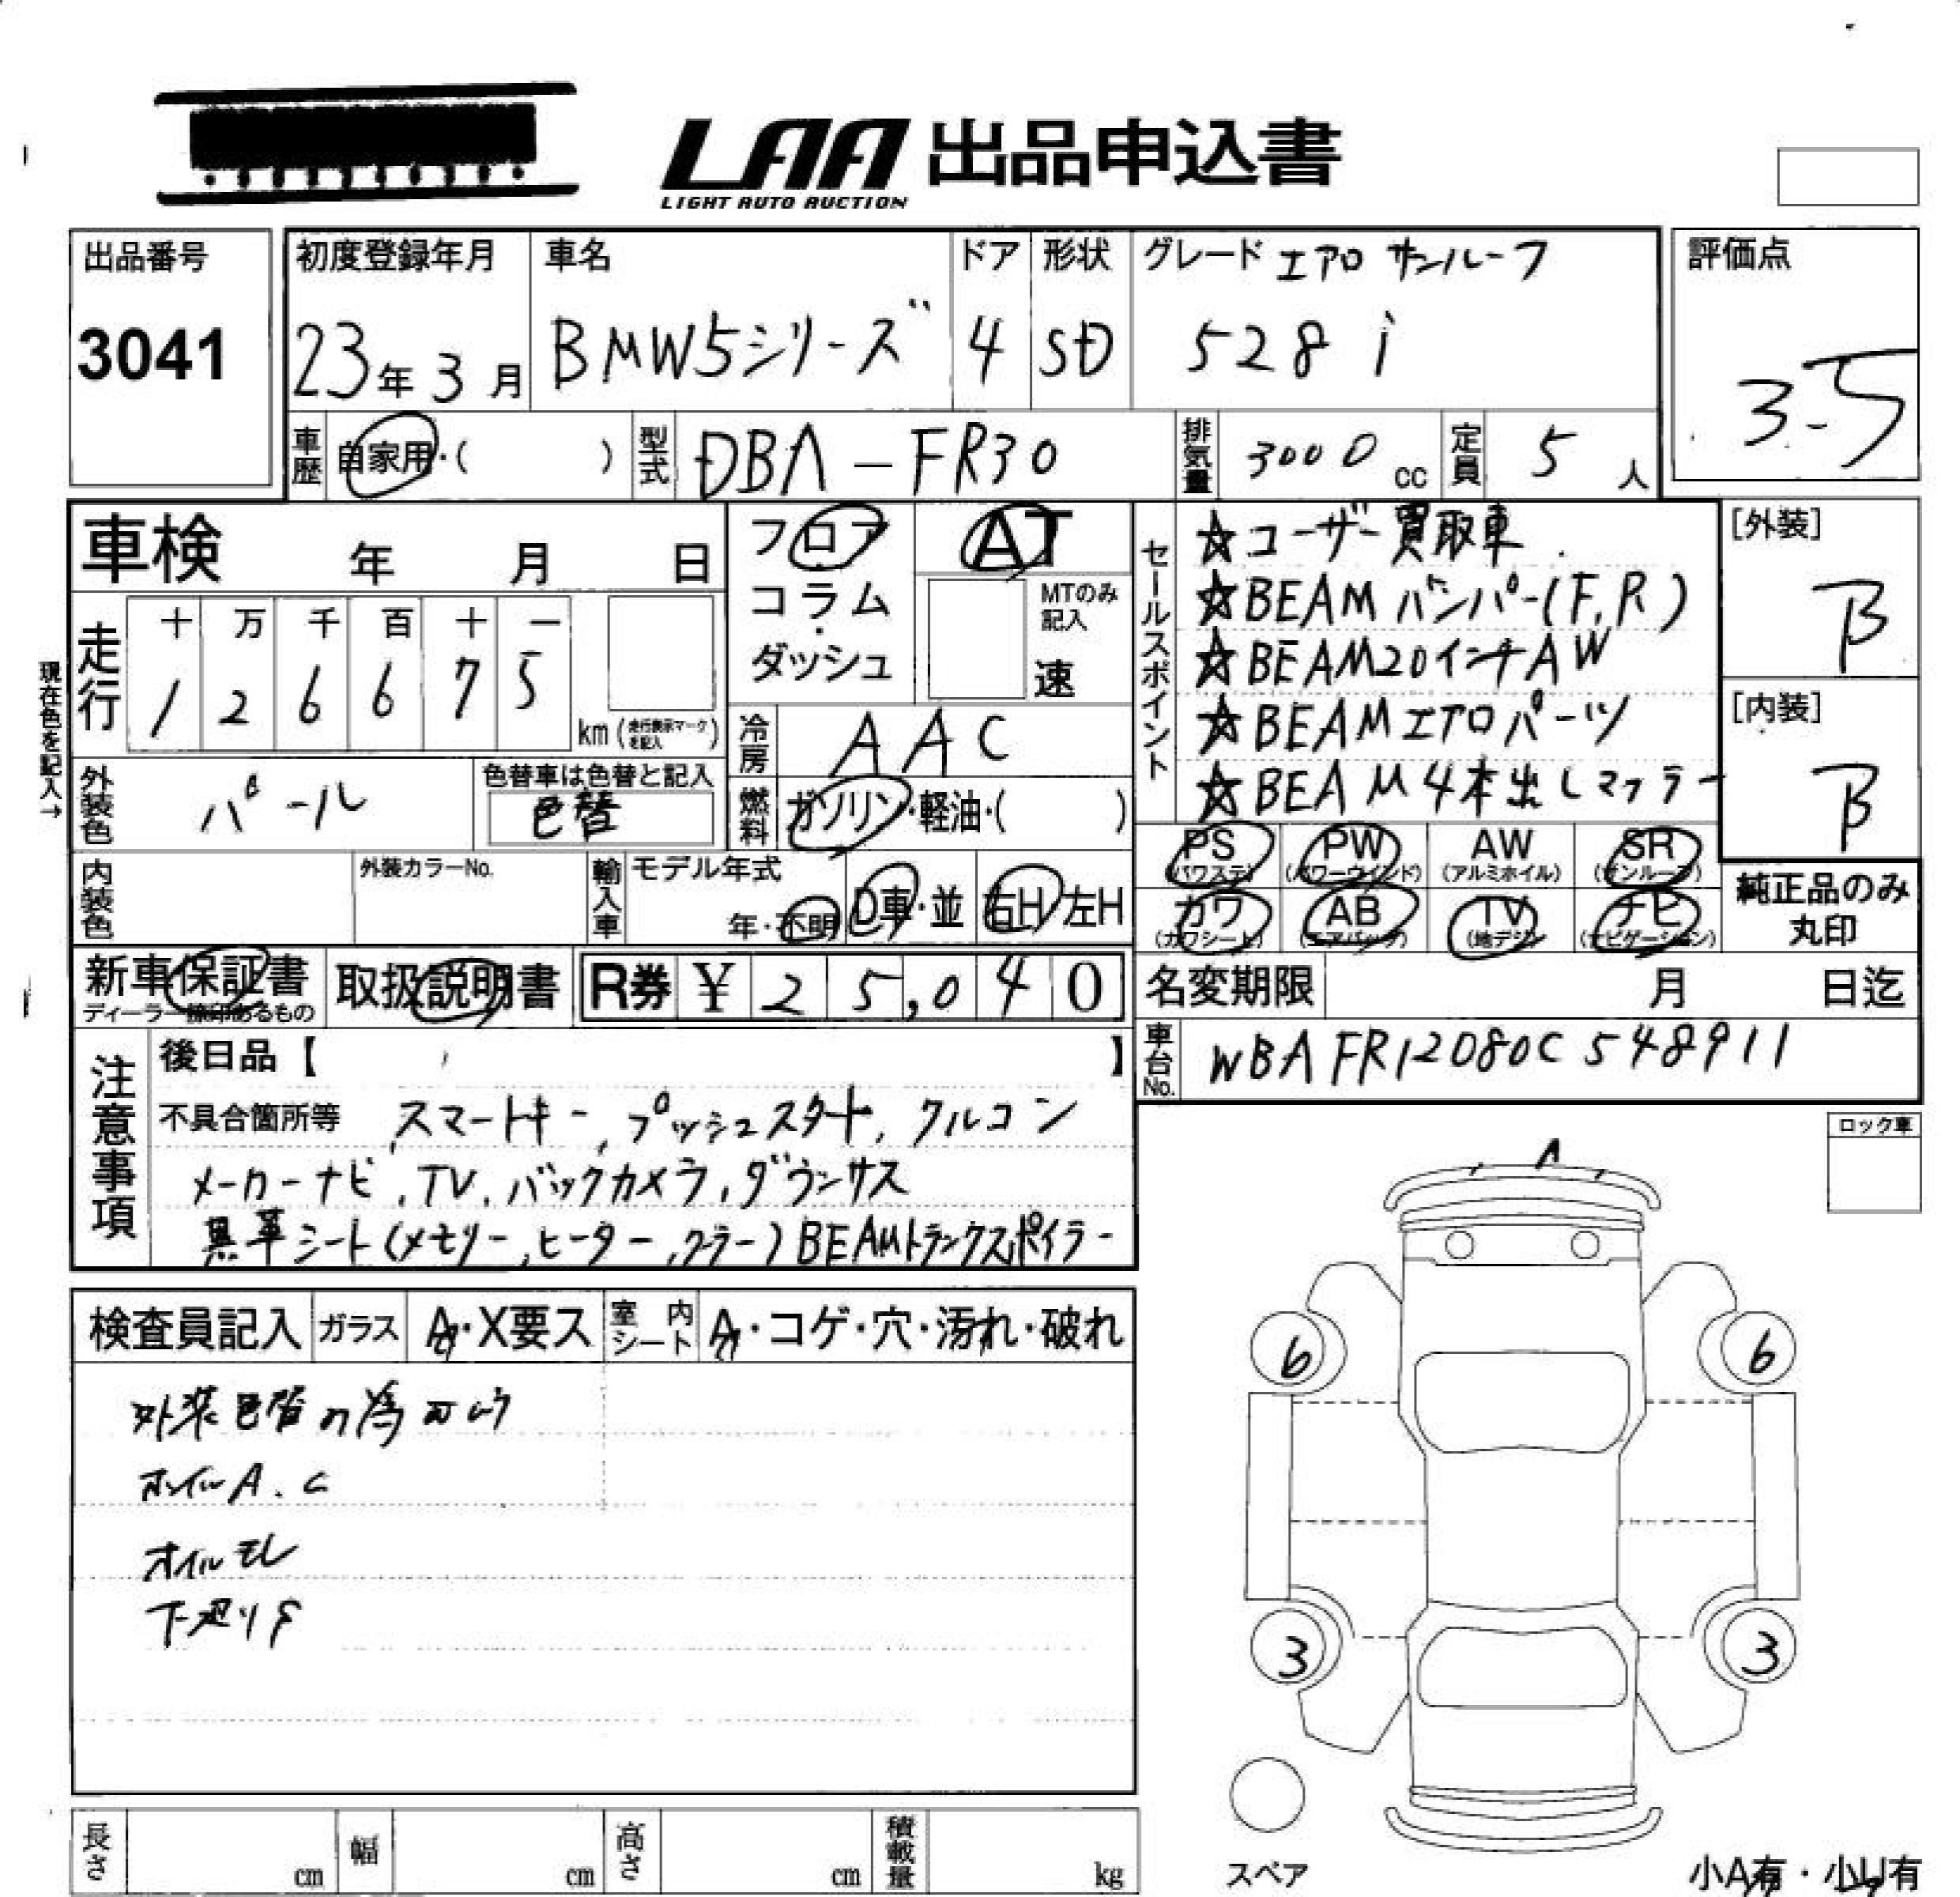 LAA 出品申込書
LIGHT AUTO AUCTION
出品番号
3041
初度登録年月
23年3月
車名
BMW5シリーズ
ドア
4
形状
SD
グレード エアロ サンルーフ
528i
評価点
3.5
車歴 自家用・( )
型式 DBA-FR30
排気量 3000 cc
定員 5 人
車検 年 月 日
フロア
コラム
・
ダッシュ
AT
MTのみ記入
速
走行
十 万 千 百 十 一
1 2 6 6 7 5
km(走行表示マークを記入)
現在色を記入→
冷房 AAC
外装色 パール
色替車は色替と記入
色替
燃料 ガソリン・軽油・( )
内装色
外装カラーNo.
輸入車
モデル年式
年・不明
D車・並
右H 左H
セールスポイント
☆ユーザー買取車
☆BEAM バンパー(F,R)
☆BEAM20インチAW
☆BEAMエアロパーツ
☆BEAM4本出しマフラー
[外装]
B
[内装]
B
PS(パワステ) PW(パワーウインド) AW(アルミホイル) SR(サンルーフ)
カワ(カワシート) AB(エアバック) TV(地デジ) ナビ(ナビゲーション)
純正品のみ
丸印
新車保証書
ディーラー捺印あるもの
取扱説明書
R券 ¥ 25,040
名変期限 月 日迄
車台No. WBAFR12080C548911
注意事項
後日品【 】
不具合箇所等 スマートキー,プッシュスタート,クルコン
メーカーナビ,TV,バックカメラ,ダウンサス
黒革シート(メモリー,ヒーター,クーラー)BEAMトランクスポイラー
ロック車
検査員記入 ガラス A・X要ス 室内シート A・コゲ・穴・汚れ・破れ
外装色替の為
ホイルA.C
オイルモレ
下廻りS
A
6 6
3 3
スペア
小A有・小U有
長さ cm 幅 cm 高さ cm 積載量 kg